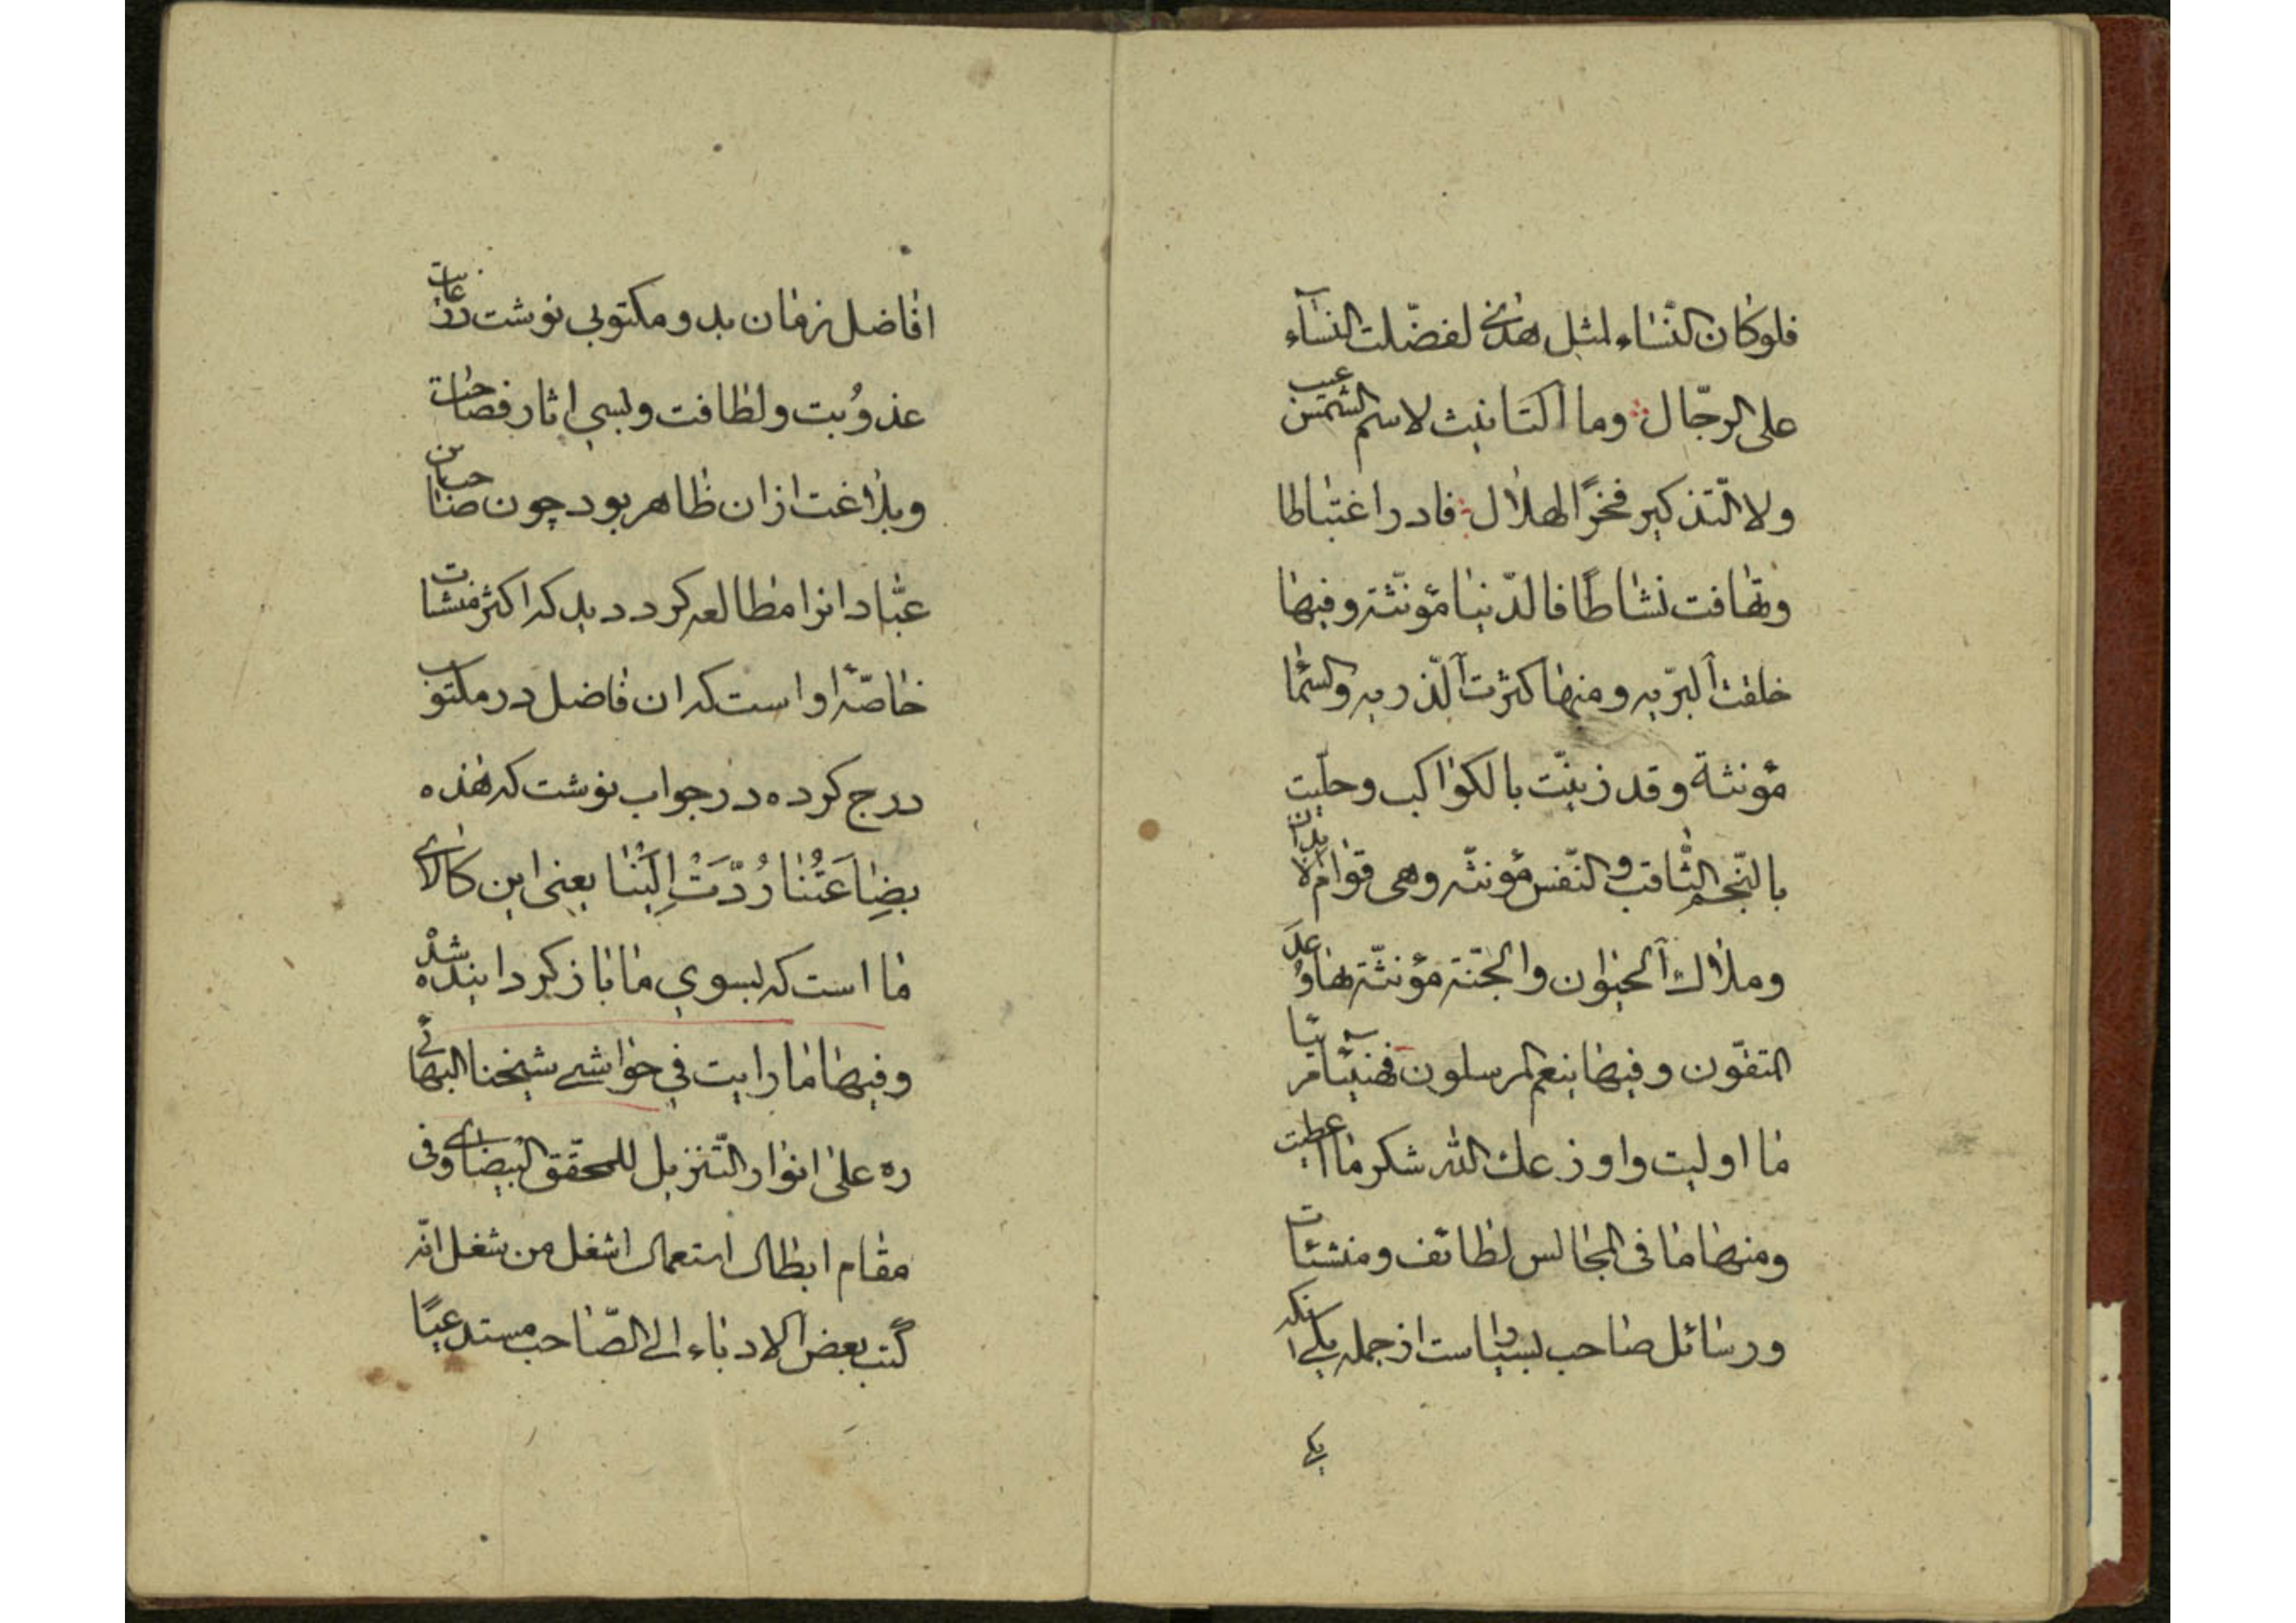 فلو كان النّساء لمثل هذى لفضّلت النساء
على الرجّال وما التانيث لاسم الشمس عيب
ولا التّذكير فخرًا لهلال فادر اغتباطا
وتهافت نشاطًا فالدّنيا مؤنّثة وفيها
خلقت البرّيه ومنها كثرت الذّريه والسّما
مؤنثة وقد زينّت بالكواكب وحلّيت
بالنّجم الثّاقب والنّفس مؤنثّه وهى قوام الابدان
وملاك الحيوان والجنّة مؤنثّة بها وُعِدَ
المتقّون وفيها ينعم المرسلون فهنيئا مريئا
ما اوليت واوزعك الله شكر ما اعطيت
ومنها ما فى المجالس لطائف ومنشئات
ورسائل صاحب بسيار است از جمله يكى انكه
يكى
افاضل زمان بدو مكتوبى نوشت در غايت
عذوُبت ولطافت وبسى اثار فصاحت
وبلاغت ازان ظاهر بود چون صاحب بن
عبّاد انرا مطالعه كرد ديد كه اكثر منشات
خاصّهٔ او است كه ان فاضل در مكتوب
درج كرده در جواب نوشت كه هذه
بضِاعَتُنا رُدّتْ اِلَيْنا يعنى اين كالاى
ما است كه بسوي ما باز گردانيده شدْ
وفيها ما رايت في حواشے شيخنا البهائى
ره على انوار التّنزيل للمحقّق البيضاوى فى
مقام ابطال استعمال اشغل من شغل انّه
كتب بعض الادباء الى الصّاحب مستدعيًا